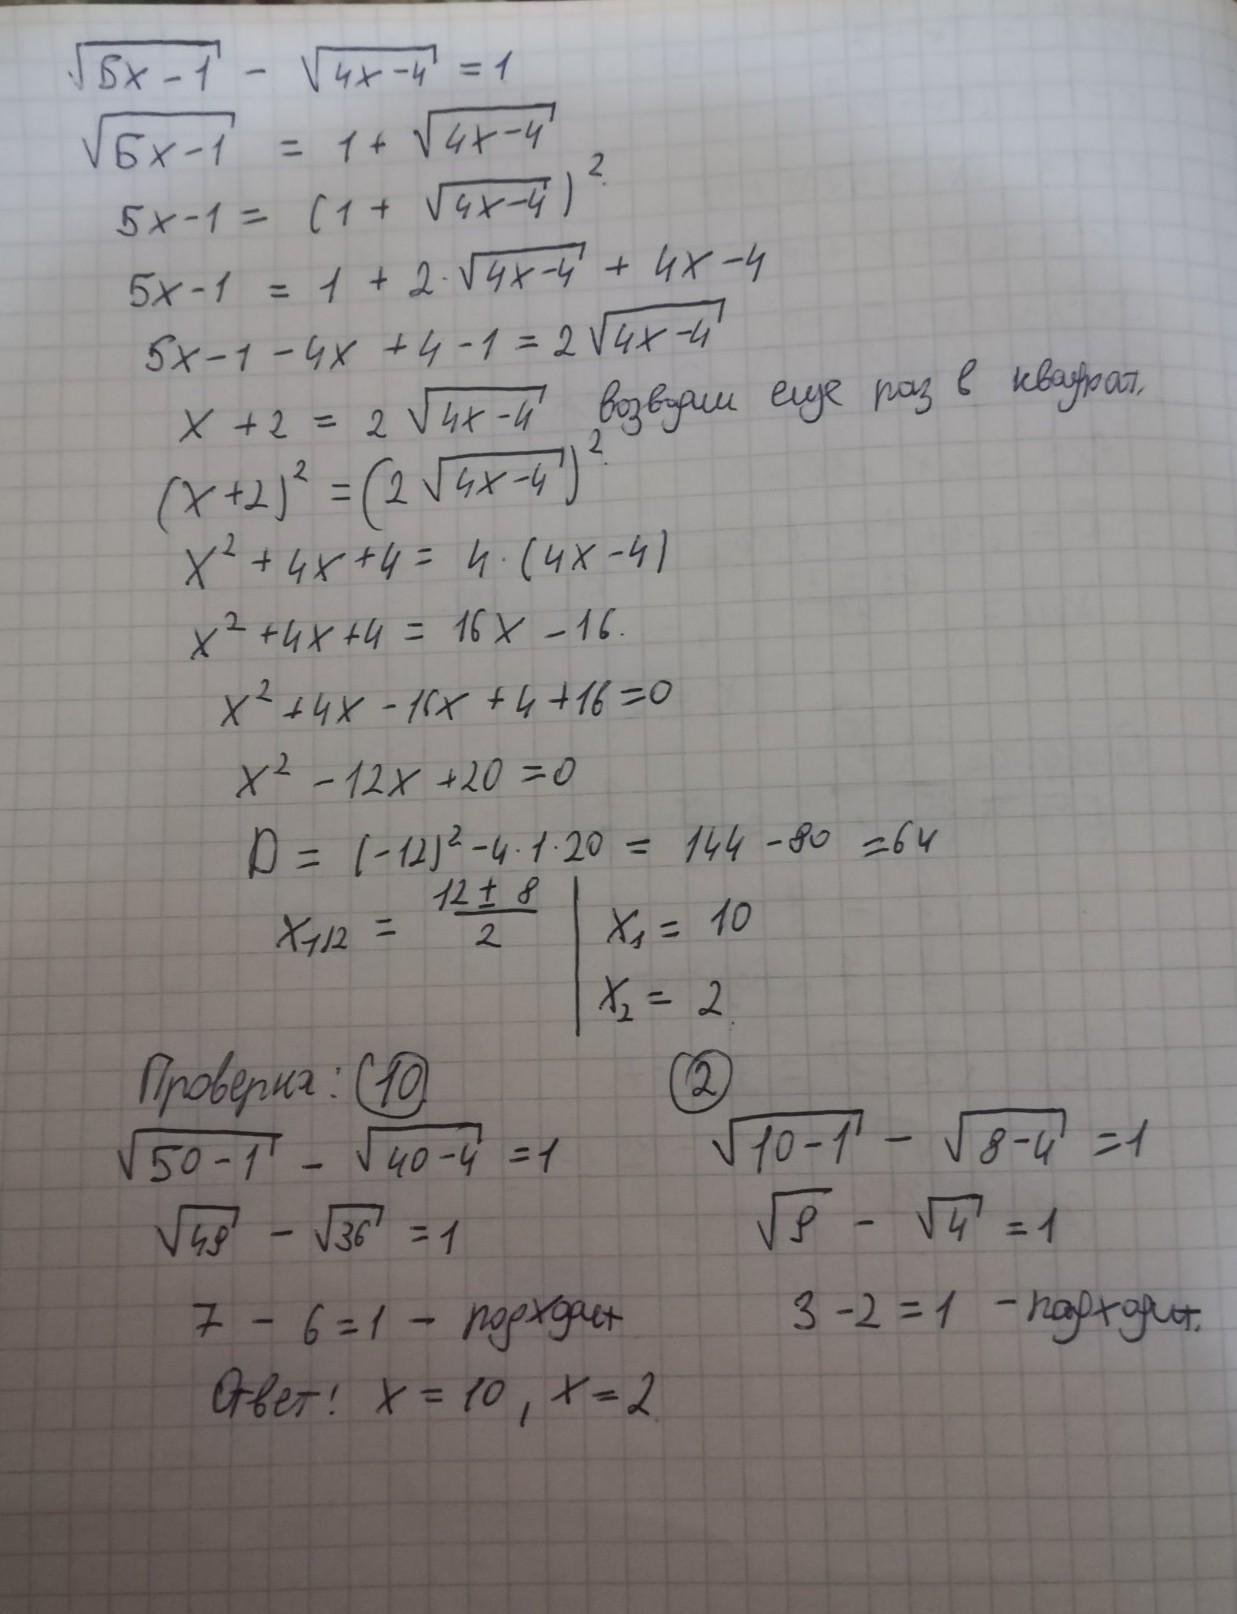 √5x-1 - √4x-4 = 1
√5x-1 = 1 + √4x-4
5x-1 = (1 + √4x-4)²
5x-1 = 1 + 2·√4x-4 + 4x-4
5x-1-4x+4-1 = 2√4x-4
x+2 = 2√4x-4 возводим еще раз в квадрат.
(x+2)² = (2√4x-4)²
x²+4x+4 = 4·(4x-4)
x²+4x+4 = 16x-16.
x²+4x-16x+4+16=0
x²-12x+20=0
D = (-12)²-4·1·20 = 144-80 = 64
x1,2 = 12±8/2 | x1 = 10
x2 = 2.
Проверка: 10 2
√50-1 - √40-4 = 1 √10-1 - √8-4 = 1
√49 - √36 = 1 √9 - √4 = 1
7 - 6 = 1 - подходит 3 - 2 = 1 - подходит.
Ответ: x = 10, x = 2